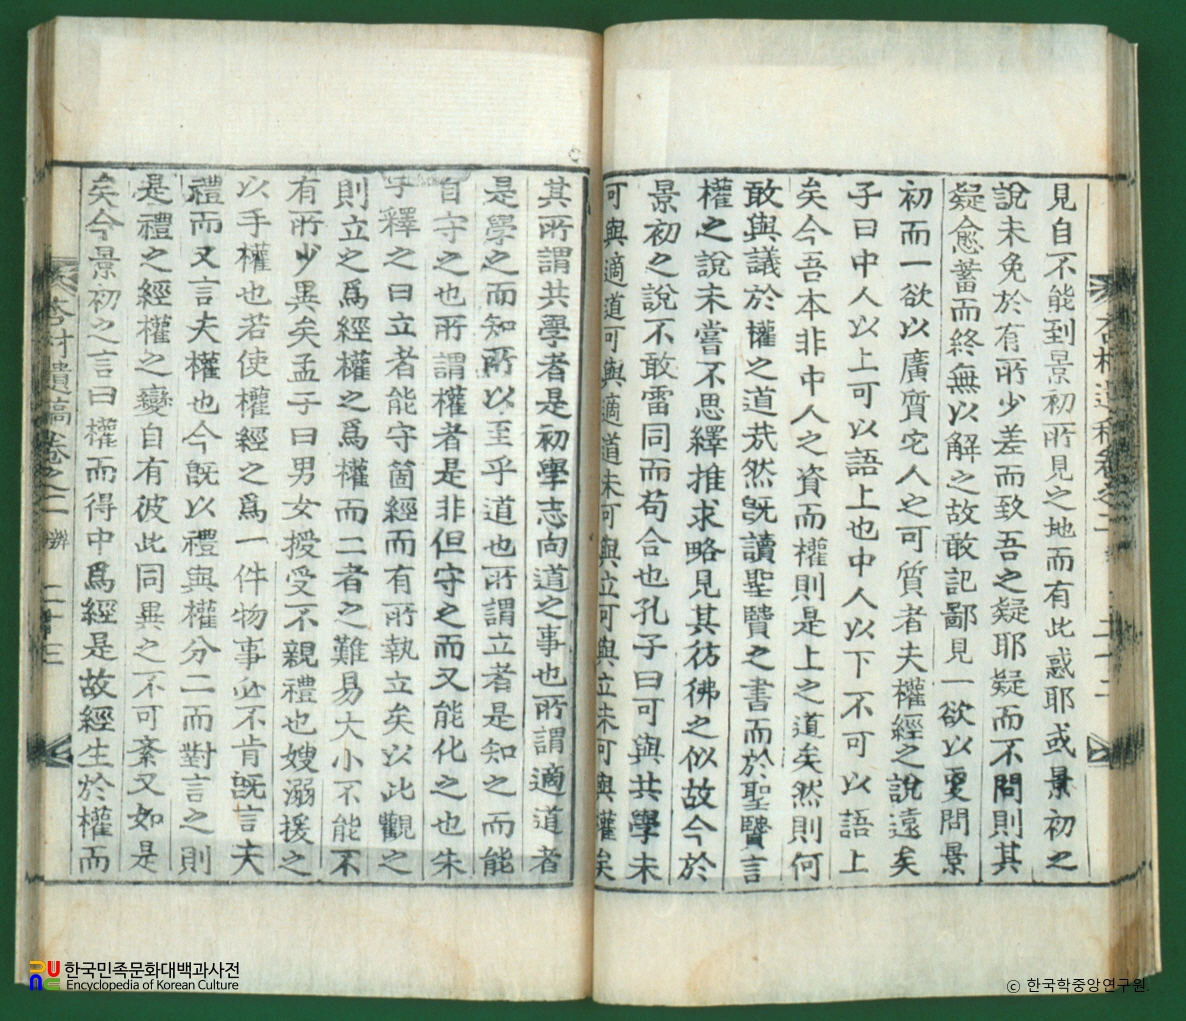 見自不能到景初所見之地而有此惑耶或景初之
說未免於有所少差而致吾之疑耶疑而不問則其
疑愈蓄而終無以解之故敢記鄙見一欲以更問景
初而一欲以廣質宅人之可質者夫權經之說遠矣
子曰中人以上可以語上也中人以下不可以語上
矣今吾本非中人之資而權則是上之道矣然則何
敢與議於權之道哉然旣讀聖賢之書而於聖賢言
權之說未嘗不思繹推求略見其彷彿之似故今於
景初之說不敢雷同而苟合也孔子曰可與共學未
可與適道可與適道未可與立可與立未可與權矣
其所謂共學者是初學志向道之事也所謂適道者
是學之而知所以至乎道也所謂立者是知之而能
自守之也所謂權者是非但守之而又能化之也朱
子釋之曰立者能守箇經而有所執立矣以此觀之
則立之爲經權之爲權而二者之難易大小不能不
有所少異矣孟子曰男女授受不親禮也嫂溺援之
以手權也若使權經之爲一件物事必不肯旣言夫
禮而又言夫權也今旣以禮與權分二而對言之則
是禮之經權之變自有彼此同異之不可紊又如是
矣今景初之言曰權而得中爲經是故經生於權而
杏村遺稿卷之二 辨 二十三
한국민족문화대백과사전
Encyclopedia of Korean Culture
© 한국학중앙연구원.